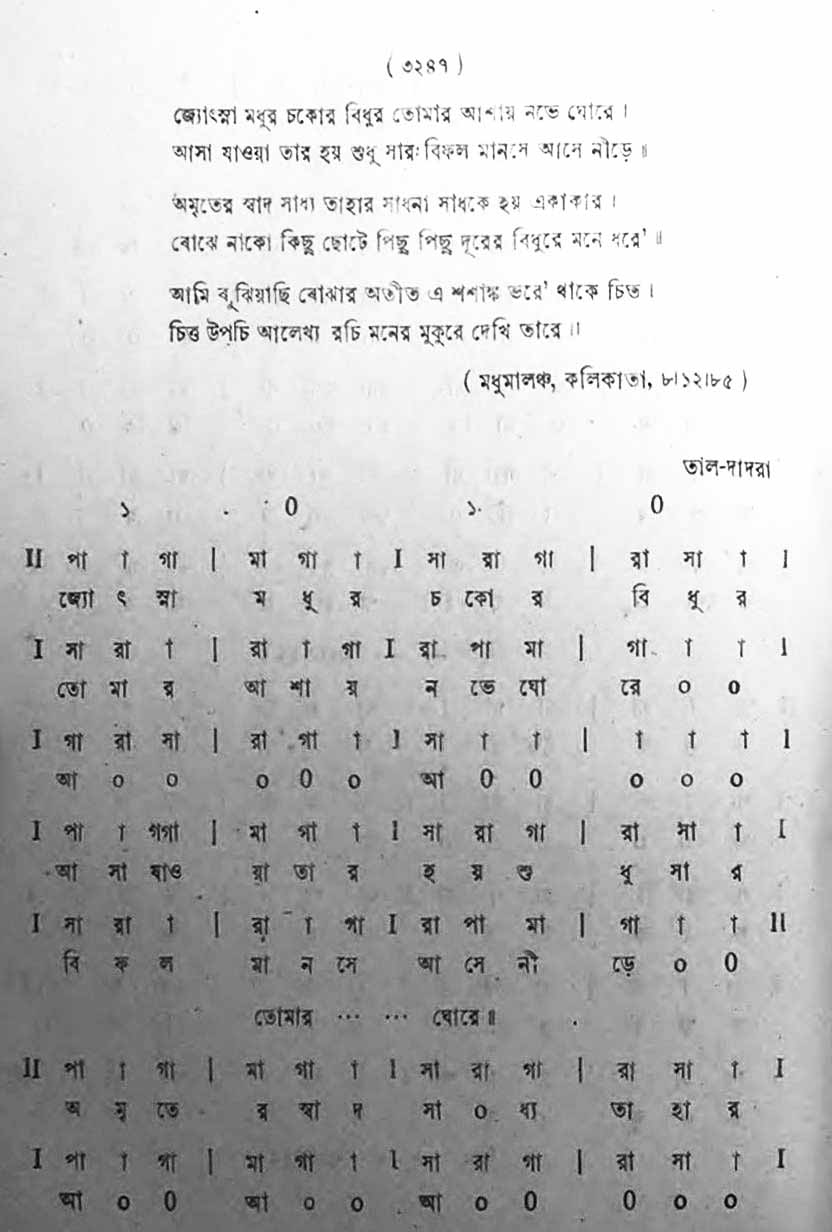 ( ৩২৪৭ )
জ্যোৎস্না মধুর চকোর বিধুর তোমার আশায় নভে ঘোরে ।
আসা যাওয়া তার হয় শুধু সার বিফল মানসে আসে নীড়ে ॥
অমৃতের স্বাদ সাধ্য তাহার সাধনা সাধকে হয় একাকার ।
বোঝে নাকো কিছু ছোটে পিছু পিছু দূরের বিধুরে মনে ধরে' ॥
আমি বুঝিয়াছি বোঝার অতীত এ শশাঙ্ক ভরে' থাকে চিত ।
চিত্ত উপচি আলেখ্য রচি মনের মুকুরে দেখি তারে ॥
( মধুমালঞ্চ, কলিকাতা, ৮।১২।৮৫ )
তাল-দাদরা
১ 0 ১ 0
II পা া গা | মা গা া I সা রা গা | রা সা া I
জ্যো ৎ স্না ম ধু র চ কো র বি ধু র
I সা রা া | রা া গা I রা পা মা | গা া া I
তো মা র আ শা য় ন ভে ঘো রে ০ ০
I গা রা সা | রা গা া I সা া া | া া া I
আ ০ ০ ০ 0 ০ আ 0 0 ০ ০ ০
I পা া গগা | মা গা া I সা রা গা | রা সা া I
আ সা যাও য়া তা র হ য় শু ধু সা র
I সা রা া | রা া গা I রা পা মা | গা া া II
বি ফ ল মা ন সে আ সে নী ড়ে ০ 0
তোমার ... ... ঘোরে ॥
II পা া গা | মা গা া I সা রা গা | রা সা া I
অ মৃ তে র স্বা দ সা ০ ধ্য তা হা র
I পা া গা | মা গা া I সা রা গা | রা সা া I
আ ০ 0 আ ০ ০ আ ০ 0 0 ০ ০